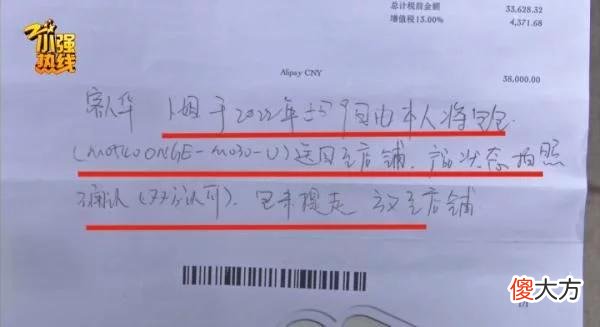 小强
热线
总计税前金额 33,628.32
增值税13.00% 4,371.68
Alipay CNY 38,000.00
客人华 卜姐于2022年 月9日由本人将包包
(M0740ONGE-M030-U)送回至店铺.产品状态拍照
确认(双方认可).包未提走 放至店铺
傻大方